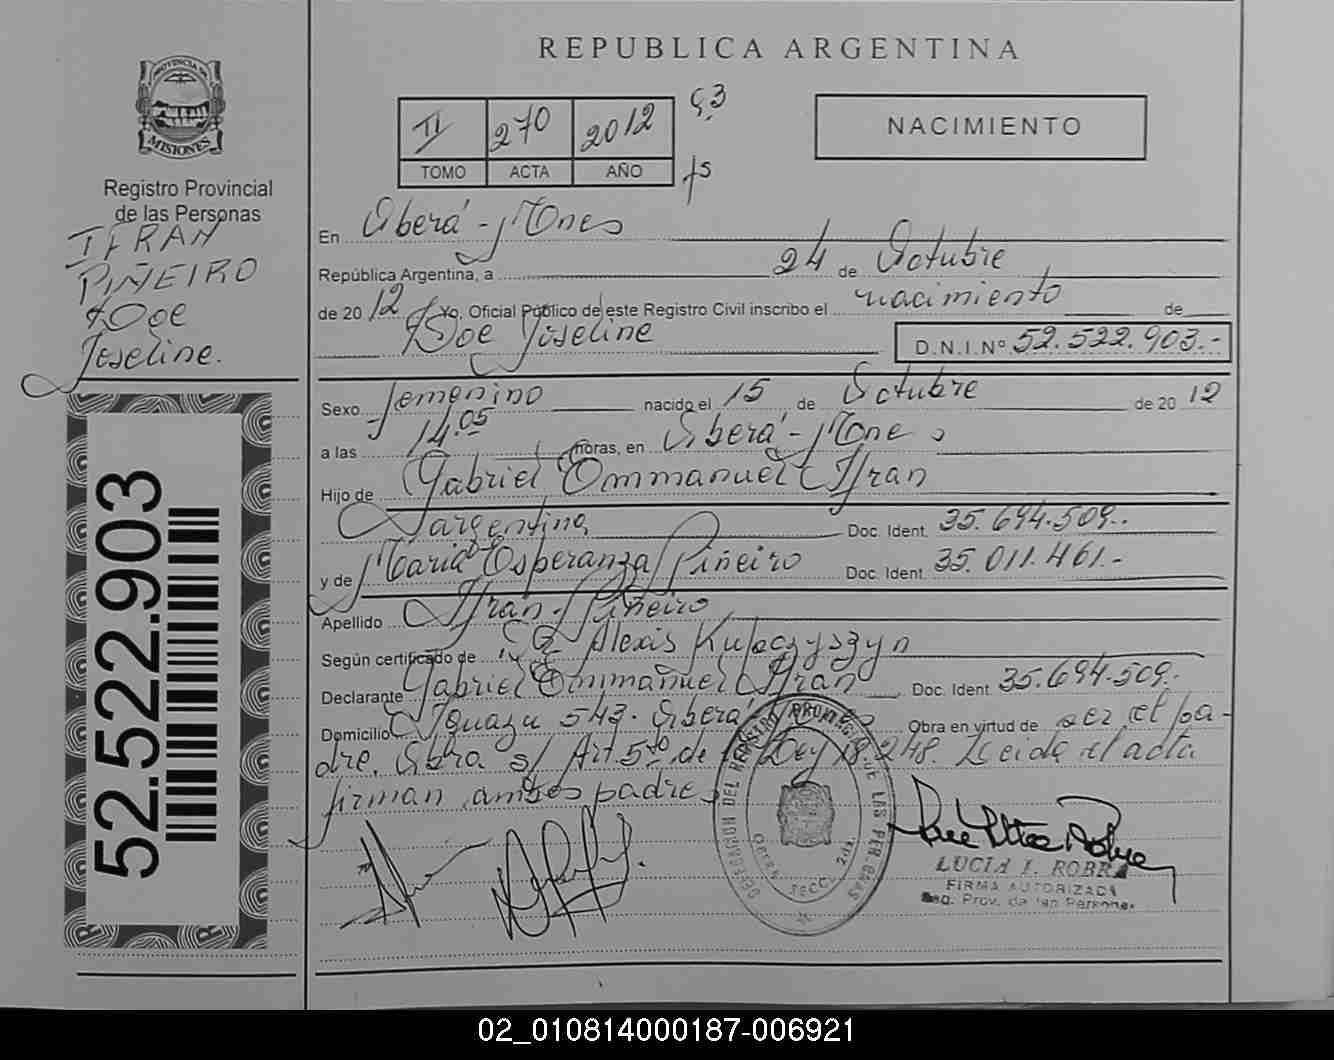 REPUBLICA ARGENTINA
PROVINCIA DE
MISIONES
Registro Provincial
de las Personas
IFRAN
PIÑEIRO
Zoe
Joseline.
52.522.903
II 270 2012 93
TOMO ACTA AÑO fs
NACIMIENTO
En Oberá - Mnes
República Argentina, a 24 de Octubre
de 2012 Yo, Oficial Público de este Registro Civil inscribo el nacimiento de
Zoe Joseline D.N.I.Nº 52.522.903.-
Sexo femenino nacido el 15 de Octubre de 2012
a las 14.05 horas, en Oberá - Mnes
Hijo de Gabriel Emmanuel Ifran
argentino Doc. Ident. 35.694.509.-
y de María Esperanza Piñeiro Doc. Ident. 35.011.461.-
Apellido Ifran - Piñeiro
Según certificado de Alexis Kupczyszyn
Declarante Gabriel Emmanuel Ifran Doc. Ident 35.694.509.-
Domicilio Iguazu 543. Oberá Mnes Obra en virtud de ser el pa-
dre. Obra s/ Art. 5to de la Ley 18.248. Leida el acta
firman ambos padres
DELEGACION DEL REGISTRO PROVINCIAL DE LAS PERSONAS
OBERA SECC. 2da.
LUCIA I. ROBRA
FIRMA AUTORIZADA
Reg. Prov. de las Personas
02_010814000187-006921